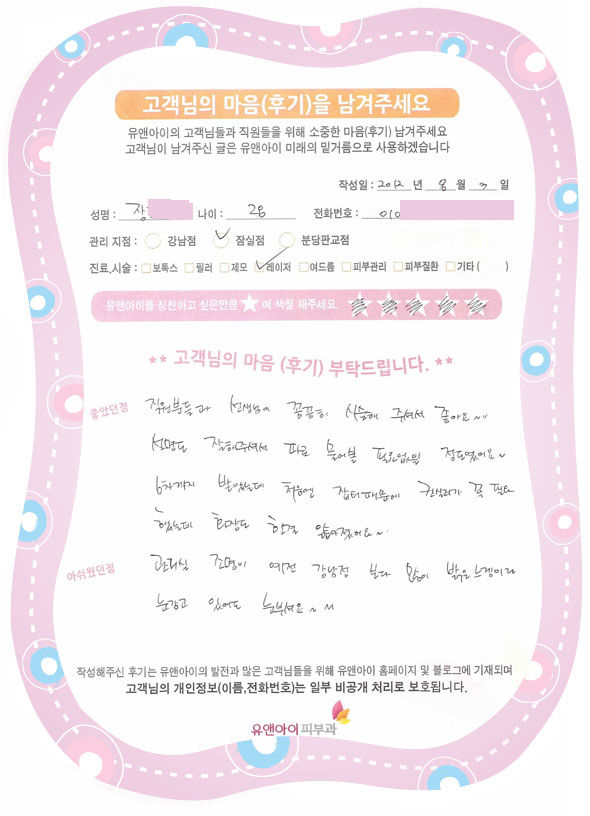 고객님의 마음(후기)을 남겨주세요
유앤아이의 고객님들과 직원들을 위해 소중한 마음(후기) 남겨주세요
고객님이 남겨주신 글은 유앤아이 미래의 밑거름으로 사용하겠습니다
작성일 : 2012 년 8 월 3 일
성명 : 장 나이 : 28 전화번호 : 010
관리 지점 : 강남점 잠실점 분당판교점
진료.시술 : 보톡스 필러 제모 레이저 여드름 피부관리 피부질환 기타 ( )
유앤아이를 칭찬하고 싶은만큼 ★ 에 색칠 해주세요.
** 고객님의 마음 (후기) 부탁드립니다. **
좋았던점 직원분들과 선생님이 꼼꼼히 시술해 주셔서 좋아요~
설명도 잘해주셔서 따로 물어볼 필요없을 정도였어요~
6차까지 받았는데 처음엔 잡티때문에 컨실러가 꼭 필요
했는데 화장도 한결 얇아졌어요~
아쉬웠던점 관리실 조명이 예전 강남점 보다 많이 밝은느낌이라
눈감고 있어도 눈부셔요~
작성해주신 후기는 유앤아이의 발전과 많은 고객님들을 위해 유앤아이 홈페이지 및 블로그에 기재되며
고객님의 개인정보(이름,전화번호)는 일부 비공개 처리로 보호됩니다.
유앤아이피부과